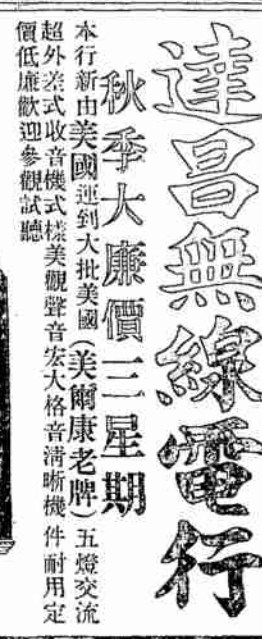 達昌無線電行
秋季大廉價三星期
本行新由美國運到大批美國(美爾康老牌)五燈交流
超外差式收音機式樣美觀聲音宏大格音清晰機件耐用定
價低廉歡迎參觀試聽